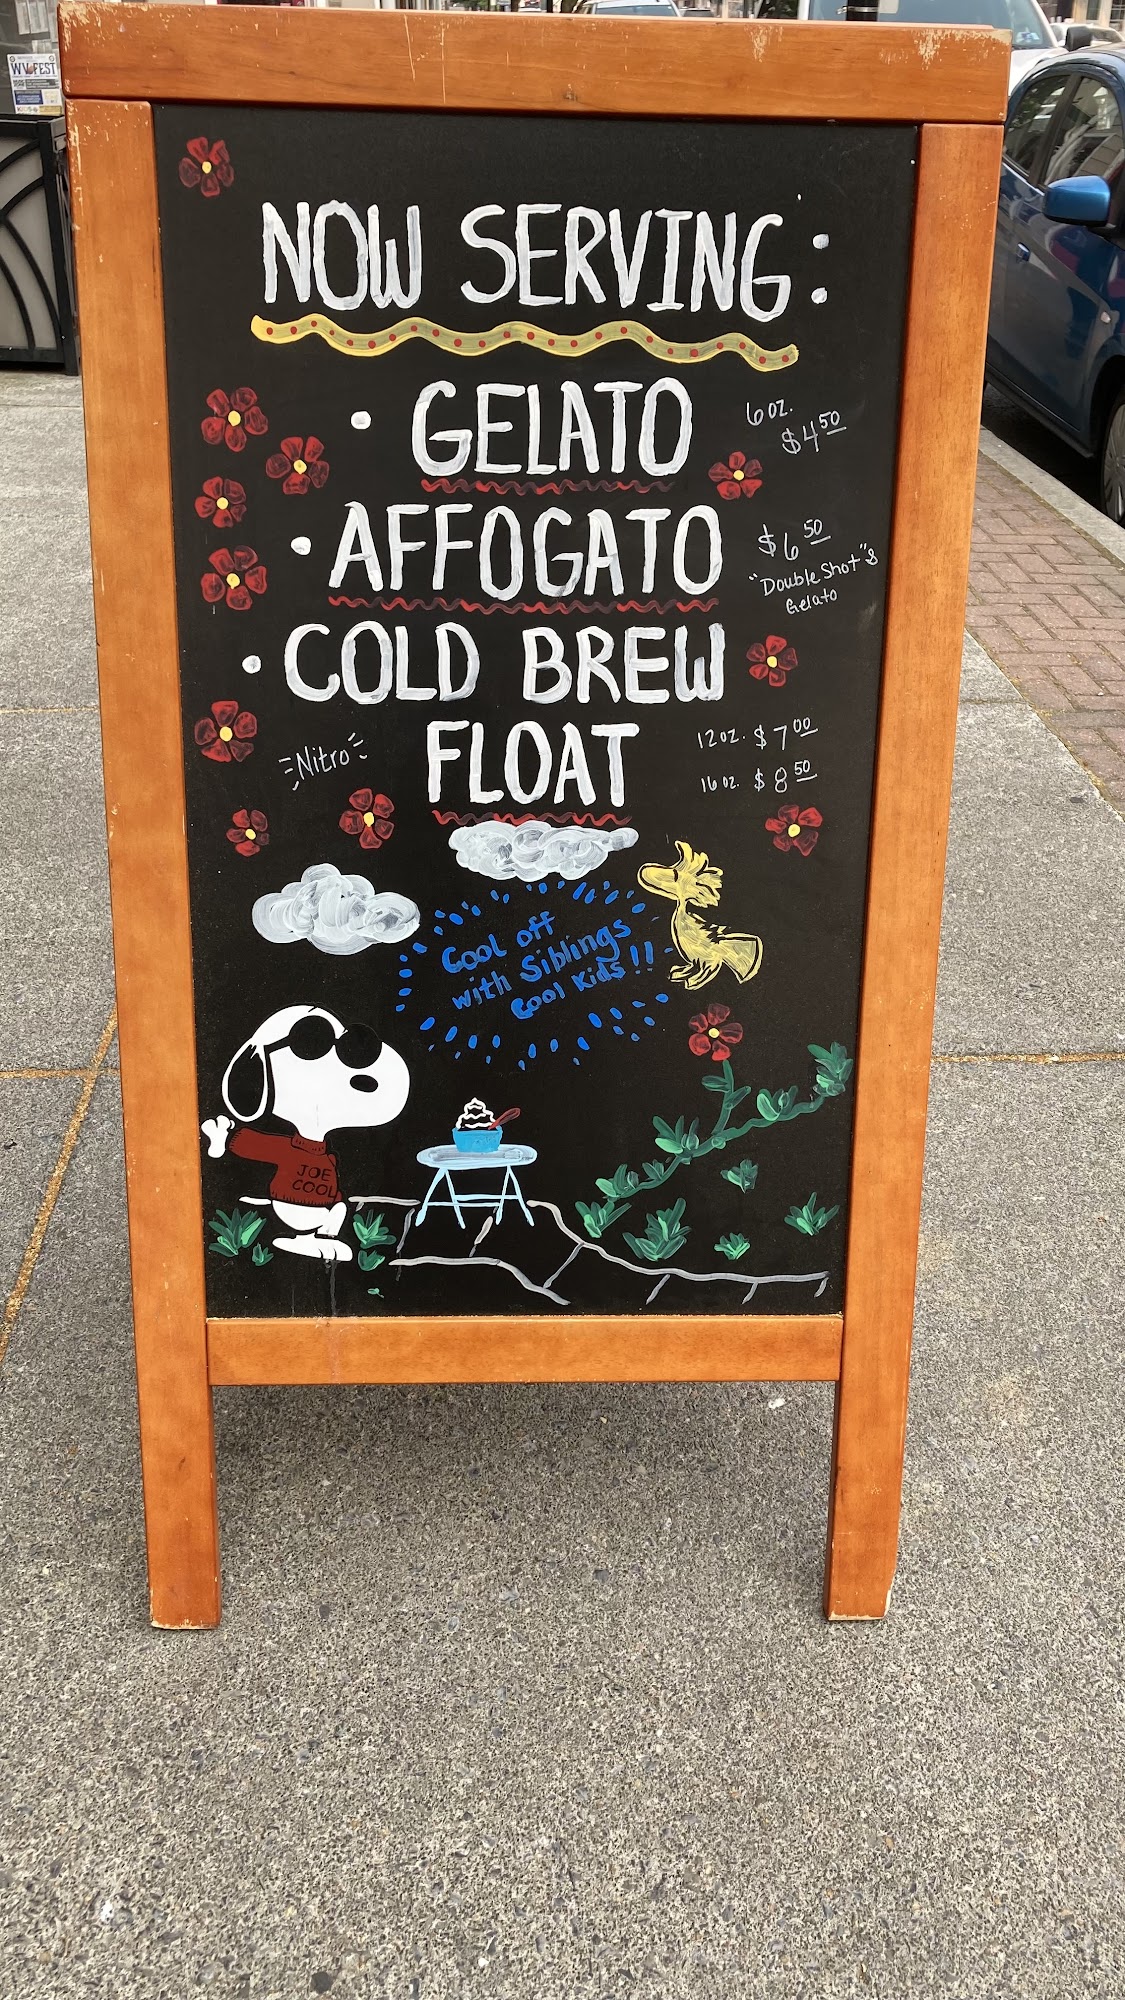 WVFEST
NOW SERVING:
• GELATO
6 oz.
$4.50
• AFFOGATO
$6.50
"Double Shot" &
Gelato
• COLD BREW
FLOAT
Nitro
12 oz. $7.00
16 oz. $8.50
Cool off
with Siblings
Cool Kids!!
JOE
COOL